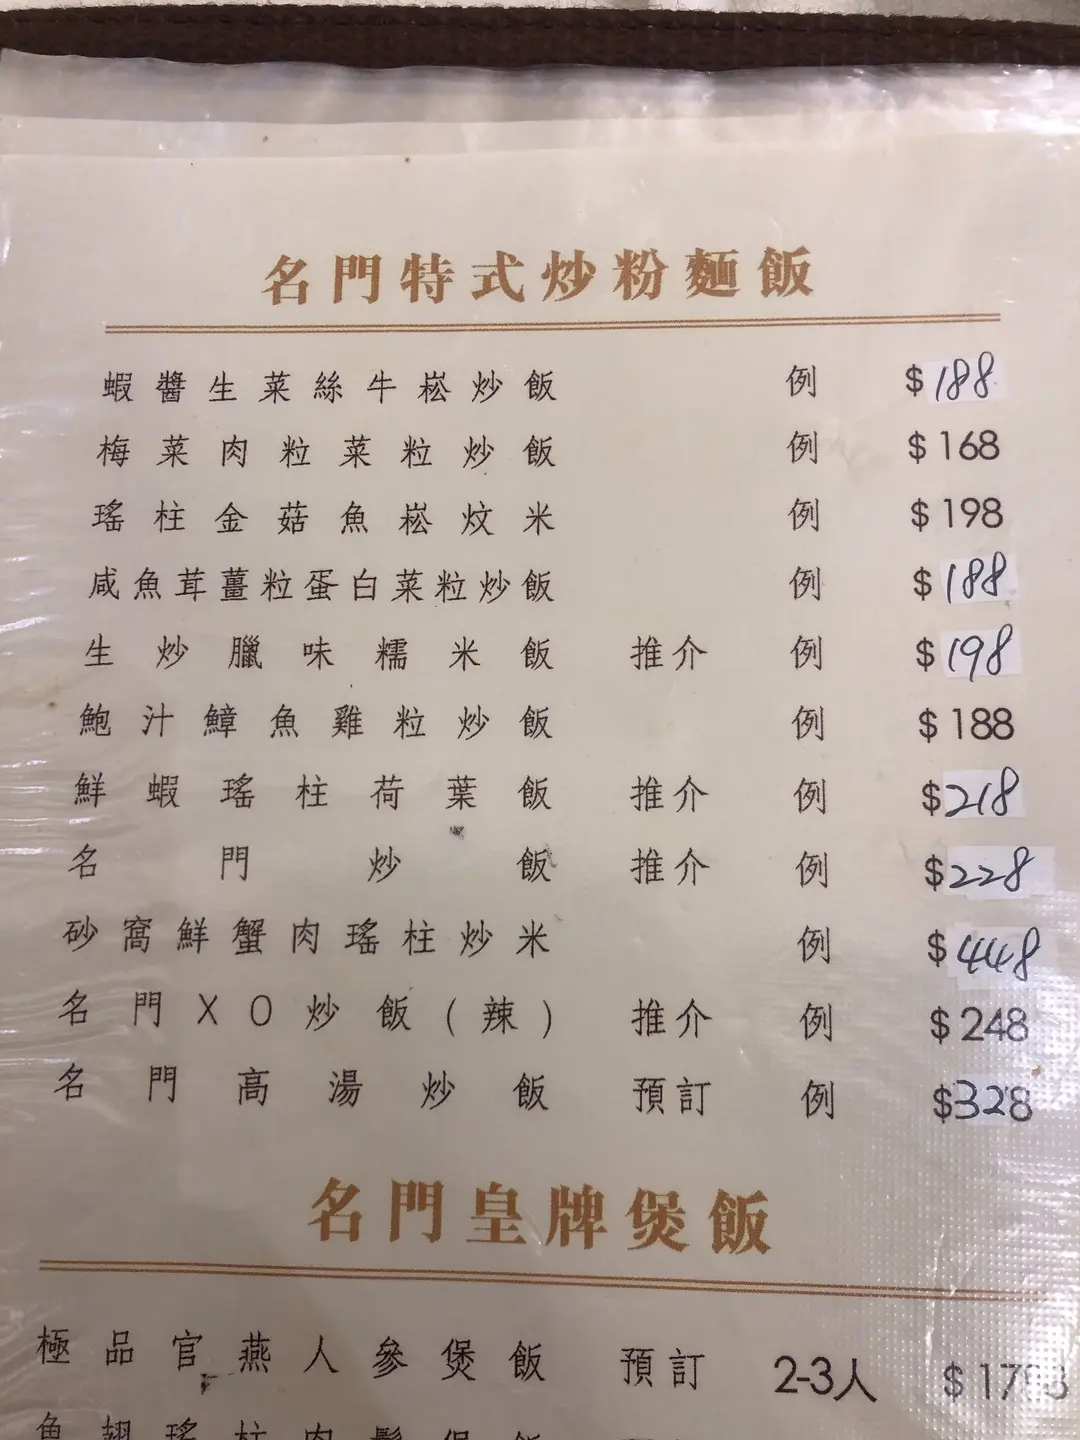 名門特式炒粉麵飯
蝦醬生菜絲牛崧炒飯 例 $188
梅菜肉粒菜粒炒飯 例 $168
瑤柱金菇魚崧炆米 例 $198
咸魚茸薑粒蛋白菜粒炒飯 例 $188
生炒臘味糯米飯 推介 例 $198
鮑汁鱆魚雞粒炒飯 例 $188
鮮蝦瑤柱荷葉飯 推介 例 $218
名門炒飯 推介 例 $228
砂窩鮮蟹肉瑤柱炒米 例 $448
名門XO炒飯(辣) 推介 例 $248
名門高湯炒飯 預訂 例 $328
名門皇牌煲飯
極品官燕人參煲飯 預訂 2-3人
魚翅瑤柱肉鬆煲飯